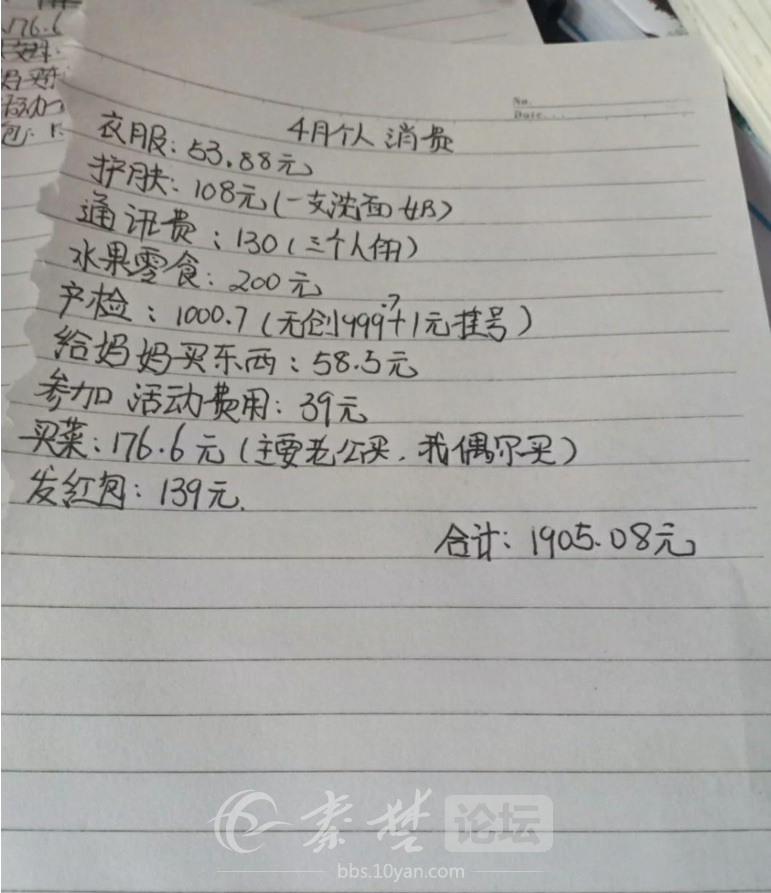 176.6
No.
Date.
4月个人消费
衣服:53.88元
护肤:108元(一支洗面奶)
通讯费:130(三个人用)
水果零食:200元
产检:1000.7(无创999.7+1元挂号)
给妈妈买东西:58.5元
参加活动费用:39元
买菜:176.6元(主要老公买,我偶尔买)
发红包:139元.
合计:1905.08元
秦楚论坛
bbs.10yan.com